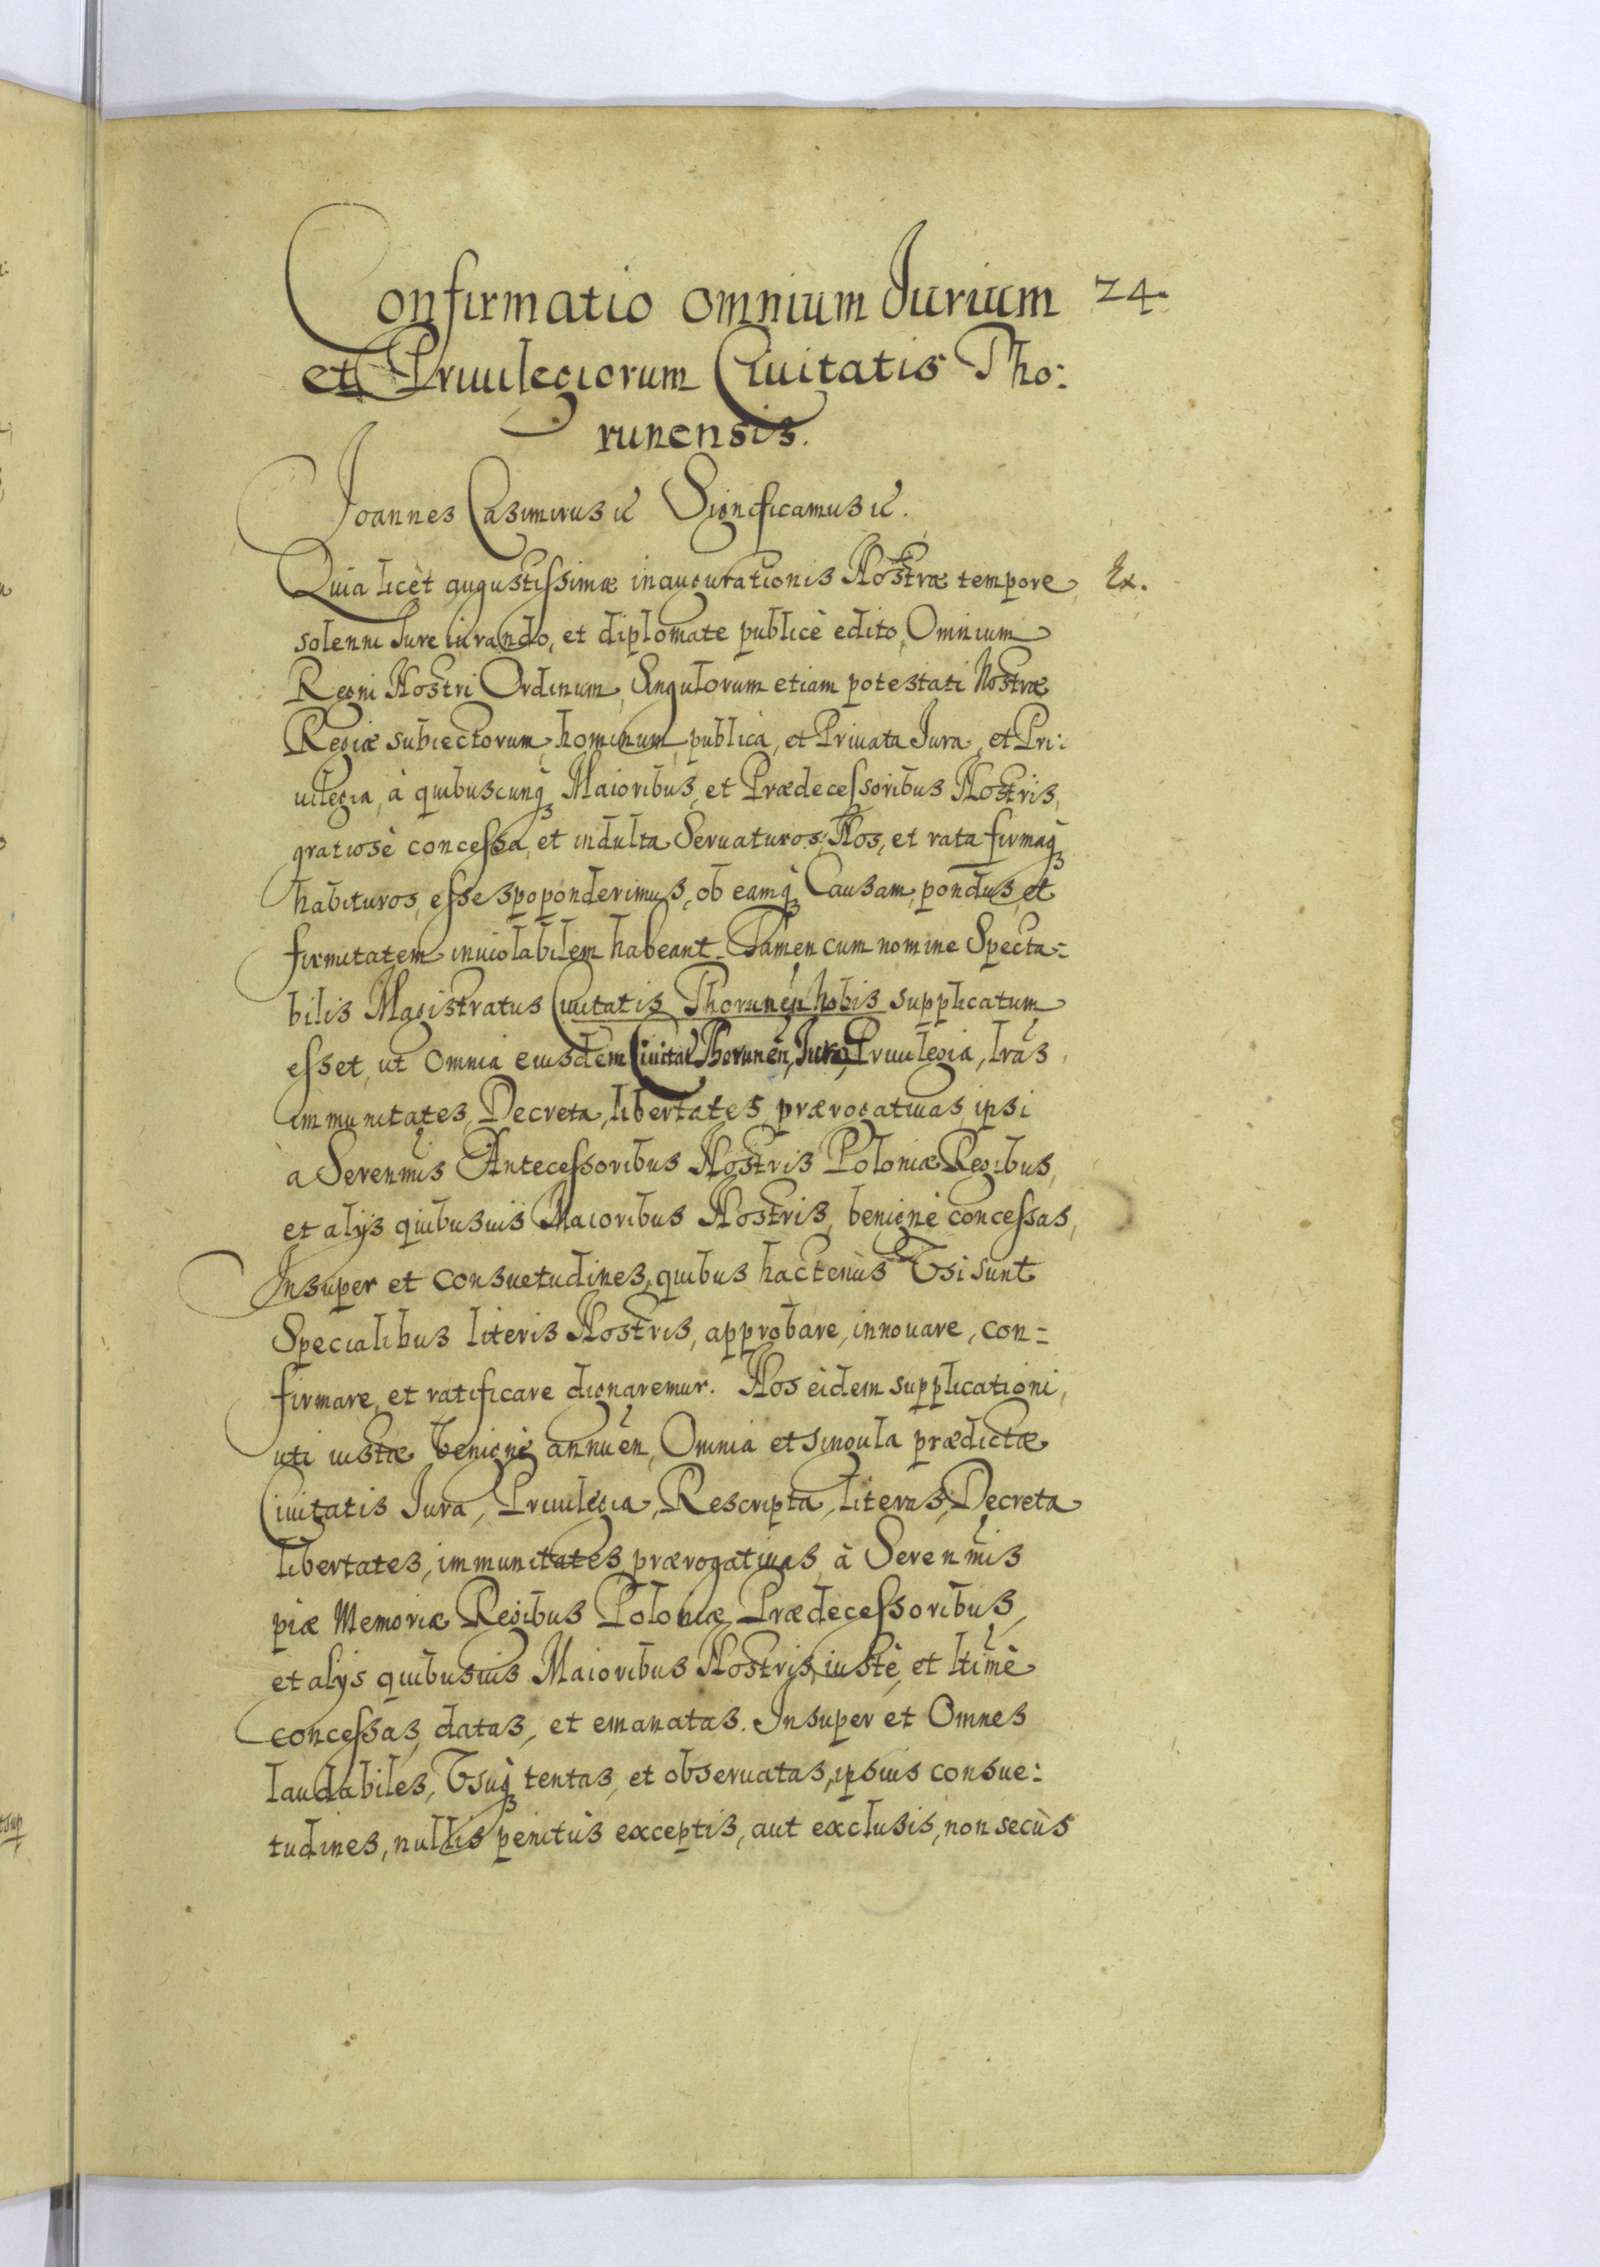 Confirmatio omnium Jurium 24.
et Priuilegiorum Ciuitatis Tho:
runensis.
Joannes Casimirus &c Significamus &c.
Quia licèt augustissimæ inaugurationis Nostræ tempore Ex.
solenni Jure iurando, et diplomate publicè edito, Omnium
Regni Nostri Ordinum, Singulorum etiam potestati Nostræ
Regiæ subiectorum, hominum, publica, et Priuata Jura, et Pri:
uilegia, à quibuscunq; Maioribus, et Prædecessoribus Nostris,
gratiosè concessa, et indulta Seruaturos Nos, et rata firmaq;
habituros, esse spoponderimus, ob eamq; Causam, pondus, et
firmitatem inuiolabilem habeant. Tamen cum nomine Specta-
bilis Magistratus Ciuitatis Thorunen̄ Nobis supplicatum
esset, ut Omnia eiusdem Ciuitat Thorunen̄, Jura, Priuilegia, lrãs,
immunitates, Decreta, libertates, prærogatiuas, ipsi
a Serenm̃is Antecessoribus Nostris Poloniæ Regibus,
et alÿs quibusuis Maioribus Nostris, benignè concessas,
Insuper et consuetudines, quibus hactenùs Vsi sunt
Specialibus literis Nostris, approbare, innouare, con-
firmare, et ratificare dignaremur. Nos eidem supplicationi,
uti iustæ benignè annuen̄, Omnia et singula prædictæ
Ciuitatis Jura, Priuilegia, Rescripta, literas, Decreta
libertates, immunitates, prærogatiuas, à Serenm̃is
piæ Memoriæ Regibus Poloniæ Prædecessoribus,
et alÿs quibusuis Maioribus Nostris, iustè, et ltimè
concessas, datas, et emanatas. Insuper et Omnes
laudabiles, Vsuq; tentas, et obseruatas, ipsius consue:
tudines, nullis penitùs exceptis, aut exclusis, non secùs